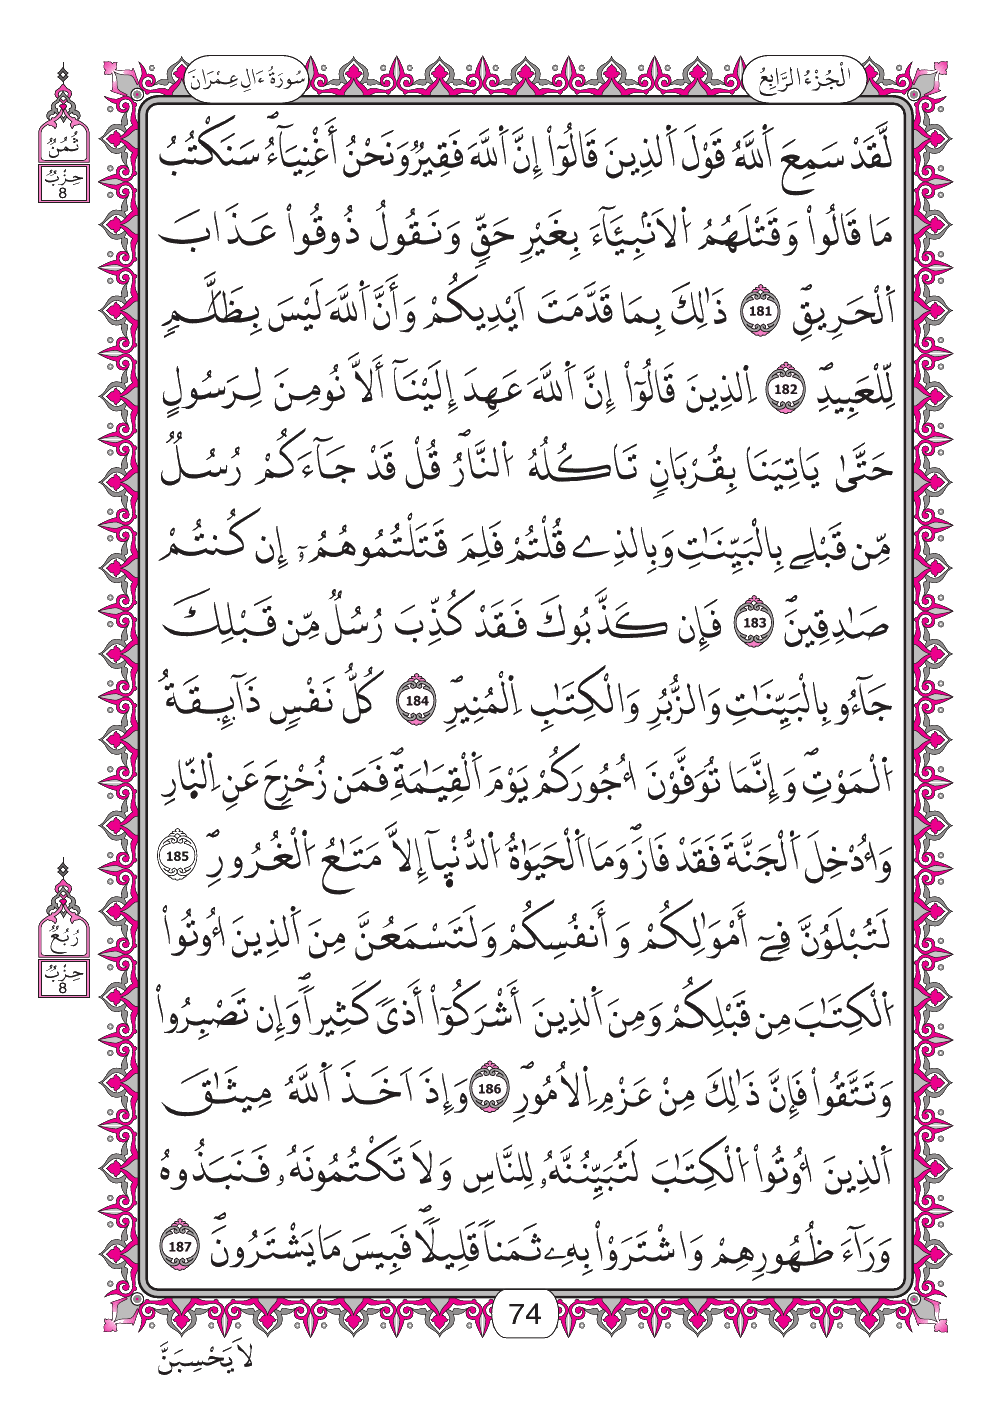 سُورَةُ ءَالِ عِمْرَانَ
اَلْجُزْءُ الرَّابِعُ
ثُمُنٌ
حِزْبٌ
8
لَّقَدْ سَمِعَ اَللَّهُ قَوْلَ اَلذِينَ قَالُوٓاْ إِنَّ اَللَّهَ فَقِيرٌ وَنَحْنُ أَغْنِيَآءُۖ سَنَكْتُبُ
مَا قَالُواْ وَقَتْلَهُمُ اُلَانۢبِيَآءَ بِغَيْرِ حَقٍّ وَنَقُولُ ذُوقُواْ عَذَابَ
اَلْحَرِيقِۖ 181 ذَٰلِكَ بِمَا قَدَّمَتَ اَيْدِيكُمْ وَأَنَّ اَللَّهَ لَيْسَ بِظَلَّٰمٍ
لِّلْعَبِيدِۖ 182 اِلذِينَ قَالُوٓاْ إِنَّ اَللَّهَ عَهِدَ إِلَيْنَآ أَلَّا نُومِنَ لِرَسُولٍ
حَتَّىٰ يَاتِيَنَا بِقُرْبَانٍ تَاكُلُهُ اُلنَّارُۖ قُلْ قَدْ جَآءَكُمْ رُسُلٌ
مِّن قَبْلِے بِالْبَيِّنَٰتِ وَبِالذِے قُلْتُمْ فَلِمَ قَتَلْتُمُوهُمُۥٓ إِن كُنتُمْ
صَٰدِقِينَۖ 183 فَإِن كَذَّبُوكَ فَقَدْ كُذِّبَ رُسُلٌ مِّن قَبْلِكَ
جَآءُو بِالْبَيِّنَٰتِ وَالزُّبُرِ وَالْكِتَٰبِ اِلْمُنِيرِۖ 184 كُلُّ نَفْسٍ ذَآئِقَةُ
اُلْمَوْتِۖ وَإِنَّمَا تُوَفَّوْنَ أُجُورَكُمْ يَوْمَ اَلْقِيَٰمَةِۖ فَمَن زُحْزِحَ عَنِ اِلنّ۪ارِ
وَأُدْخِلَ اَلْجَنَّةَ فَقَدْ فَازَۖ وَمَا اَلْحَيَوٰةُ اُلدُّنْي۪آ إِلَّا مَتَٰعُ اُلْغُرُورِۖ 185
لَتُبْلَوُنَّ فِےٓ أَمْوَٰلِكُمْ وَأَنفُسِكُمْ وَلَتَسْمَعُنَّ مِنَ اَلذِينَ أُوتُواْ
اُلْكِتَٰبَ مِن قَبْلِكُمْ وَمِنَ اَلذِينَ أَشْرَكُوٓاْ أَذىٗ كَثِيراٗۖ وَإِن تَصْبِرُواْ
وَتَتَّقُواْ فَإِنَّ ذَٰلِكَ مِنْ عَزْمِ اِلُامُورِۖ 186 وَإِذَ اَخَذَ اَللَّهُ مِيثَٰقَ
اَلذِينَ أُوتُواْ اُلْكِتَٰبَ لَتُبَيِّنُنَّهُۥ لِلنَّاسِ وَلَا تَكْتُمُونَهُۥ فَنَبَذُوهُ
وَرَآءَ ظُهُورِهِمْ وَاشْتَرَوْاْ بِهِۦ ثَمَناٗ قَلِيلاٗۖ فَبِيسَ مَا يَشْتَرُونَۖ 187
رُبُعٌ
حِزْبٌ
8
74
لَا يَحْسِبَنَّ